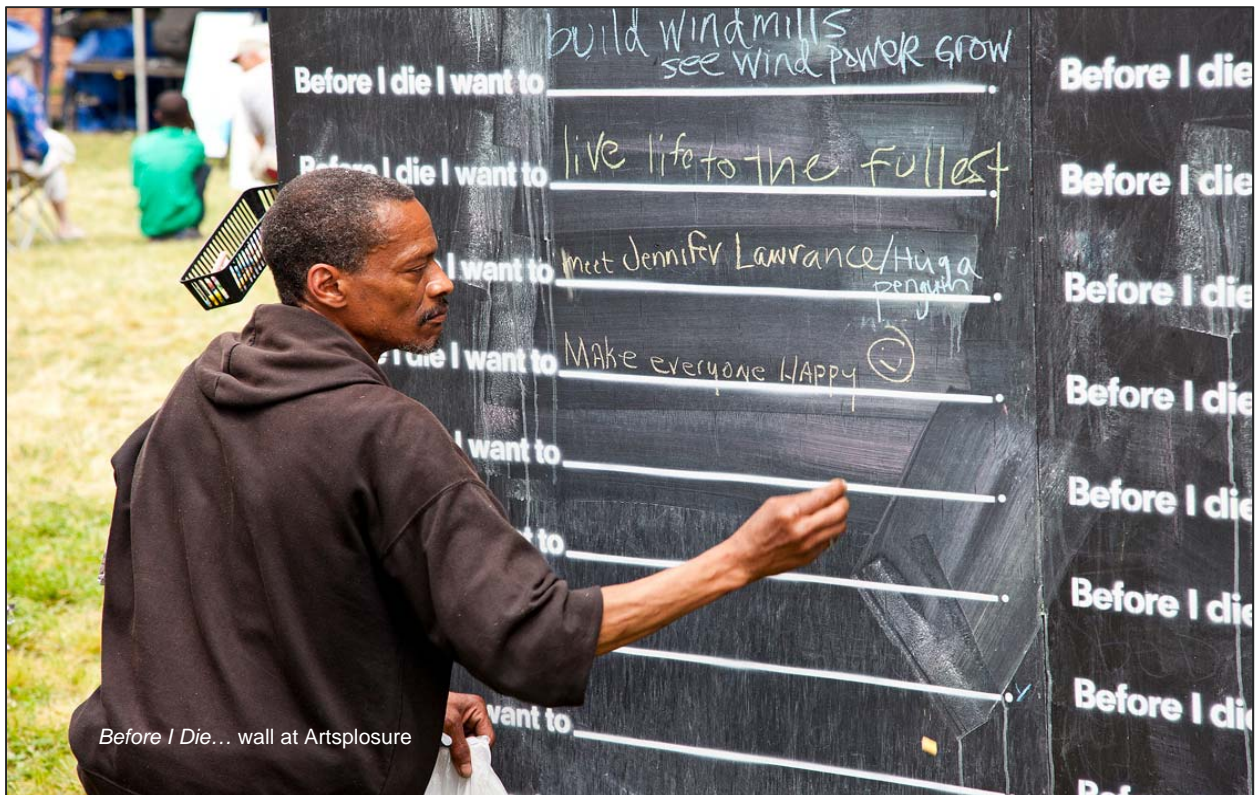 build windmills
see wind power grow
Before I die I want to
live life to the fullest
Before I die I want to
meet Jennifer Lawrance/Hug a
penguin
I want to
MAke everyone HAPPy
die I want to
I want to
to
want to
Before I die
Before I die
Before I die
Before I die
Before I die
Before I die
Before I die
Before I Die… wall at Artsplosure